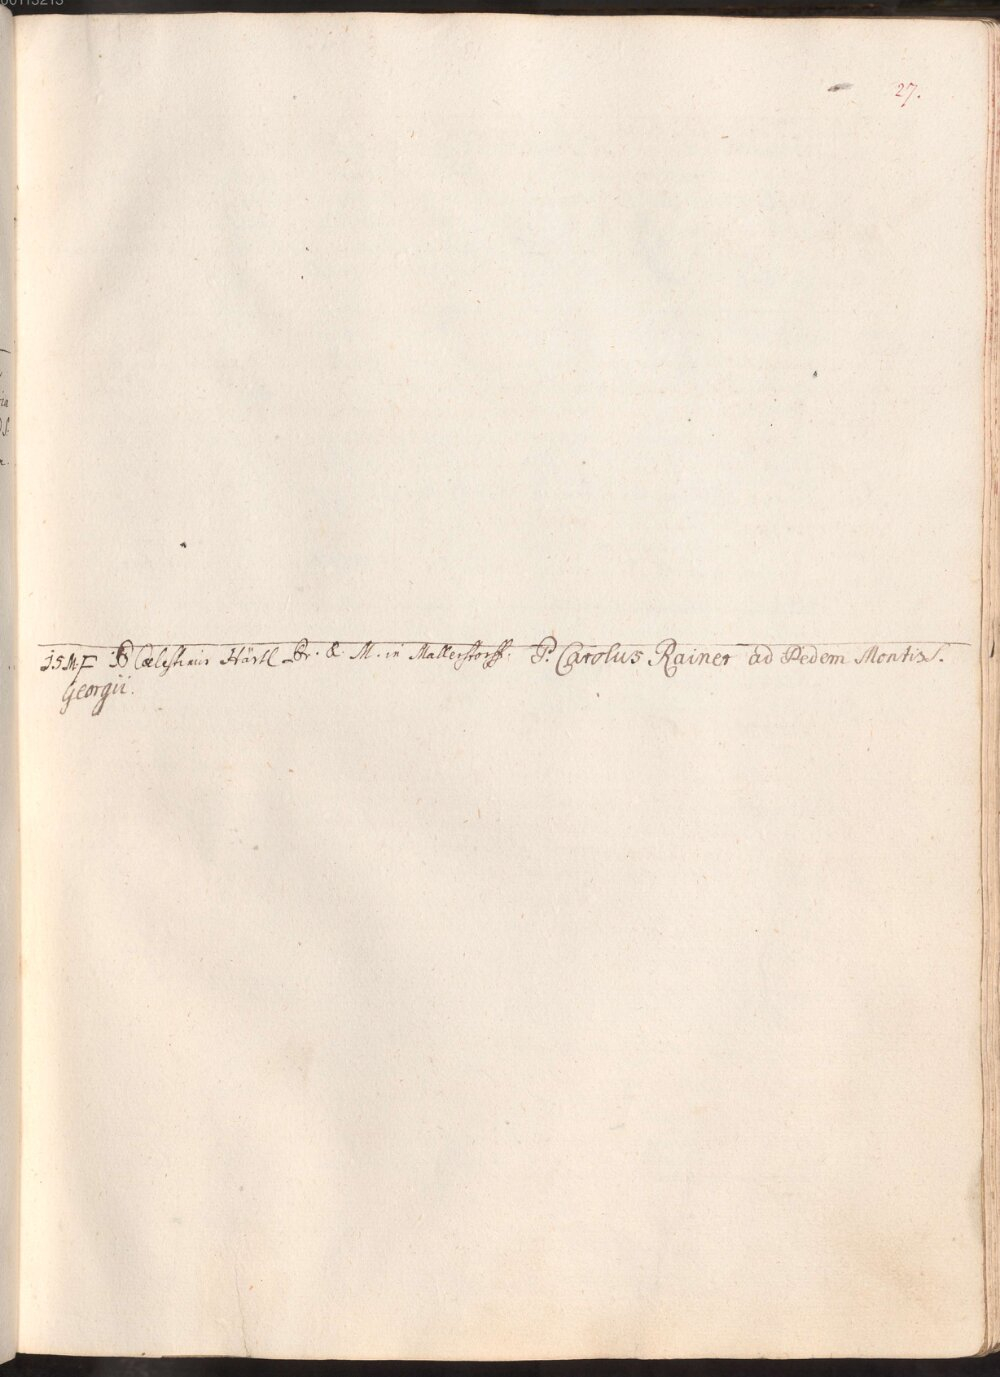 27.
15. M. F P Cælestinus Härtl Pr. & M. in Mallerstorff. P. Carolus Rainer ad Pedem Montis S.
Georgii.